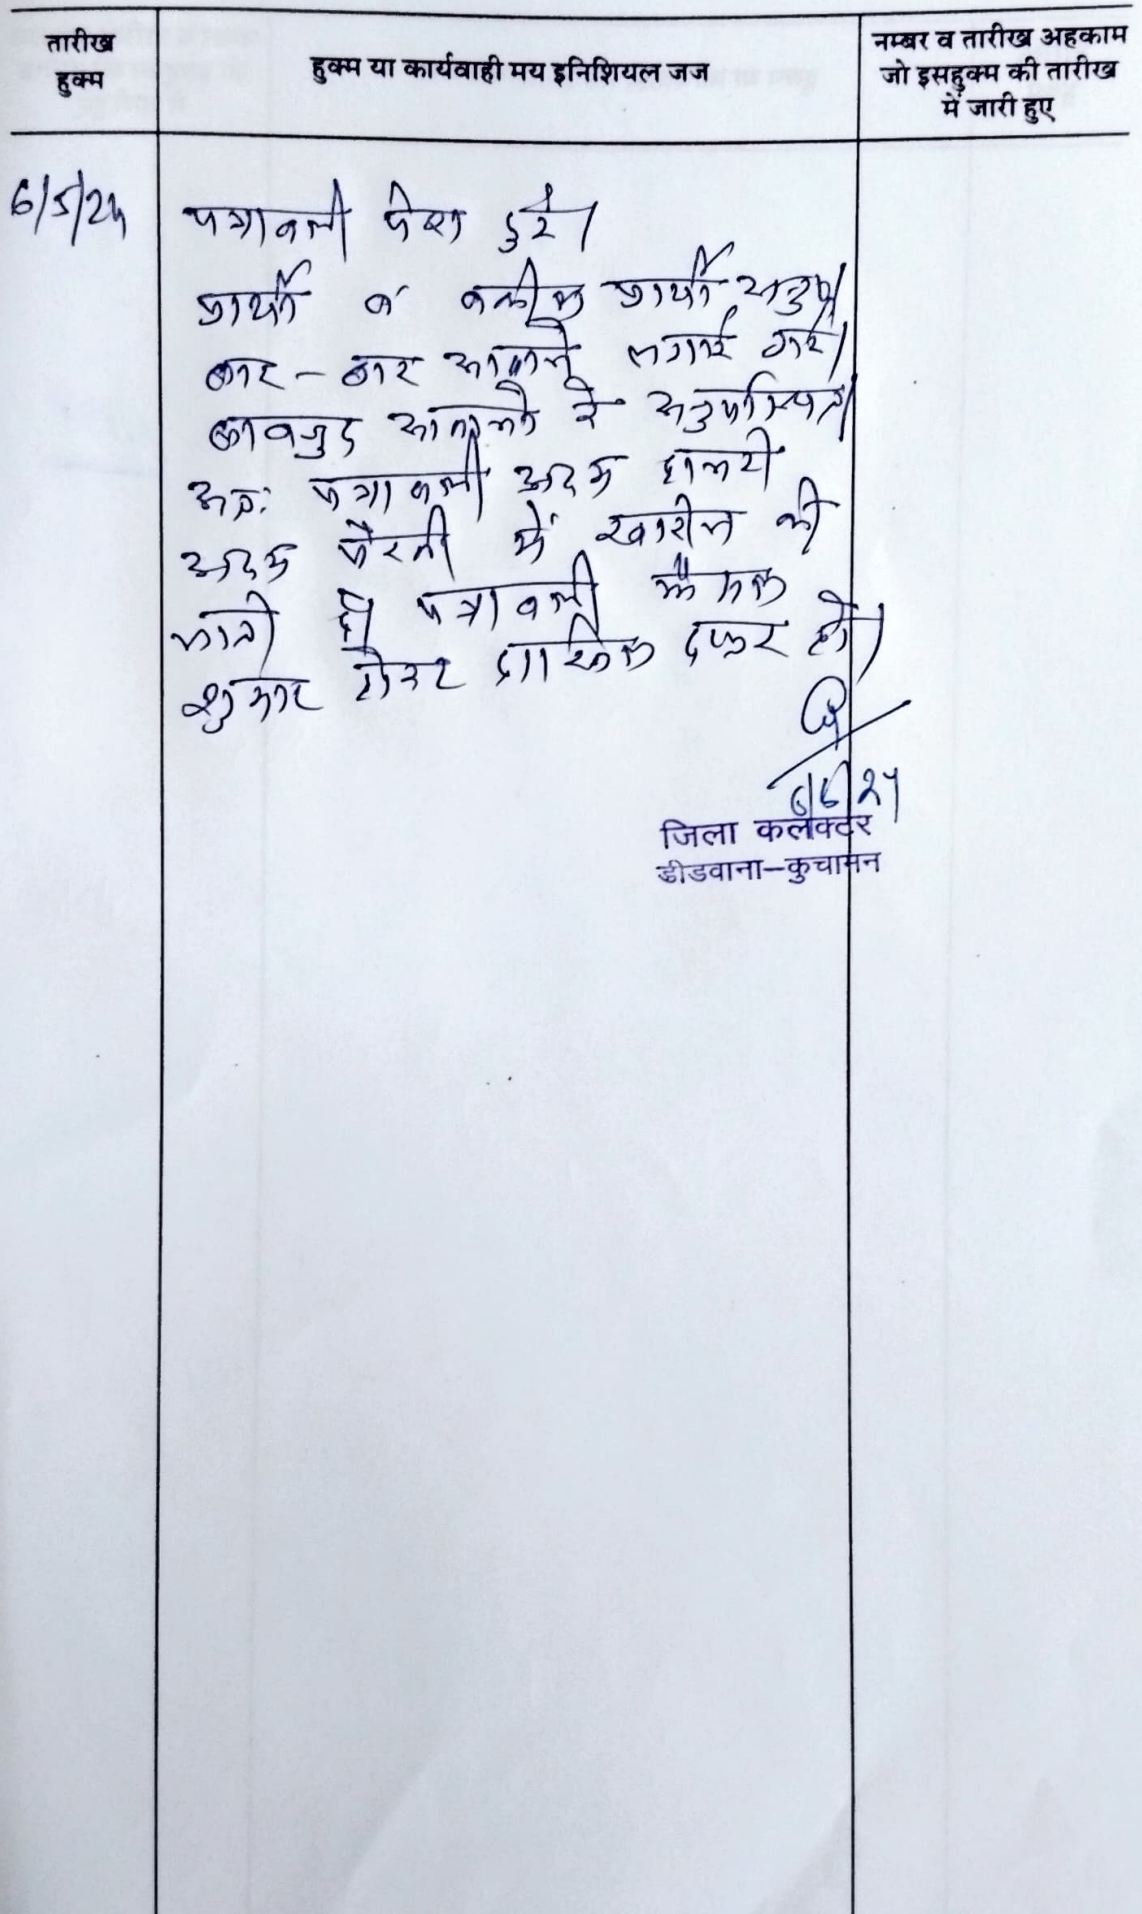 तारीख
हुक्म
हुक्म या कार्यवाही मय इनिशियल जज
नम्बर व तारीख अहकाम
जो इसहुक्म की तारीख
में जारी हुए
6/5/24
पत्रावली पेश हुई।
प्रार्थी व वकील प्रार्थी अनुप।
बार-बार आवाजे लगाई गई।
बावजुद आवाजो के अनुपस्थित।
अतः पत्रावली अदम हाजरी
अदम पैरवी में खारीज की
जाती है। पत्रावली फैसल
शुमार होकर दाखिल दफ्तर हो।
जिला कलेक्टर
डीडवाना-कुचामन